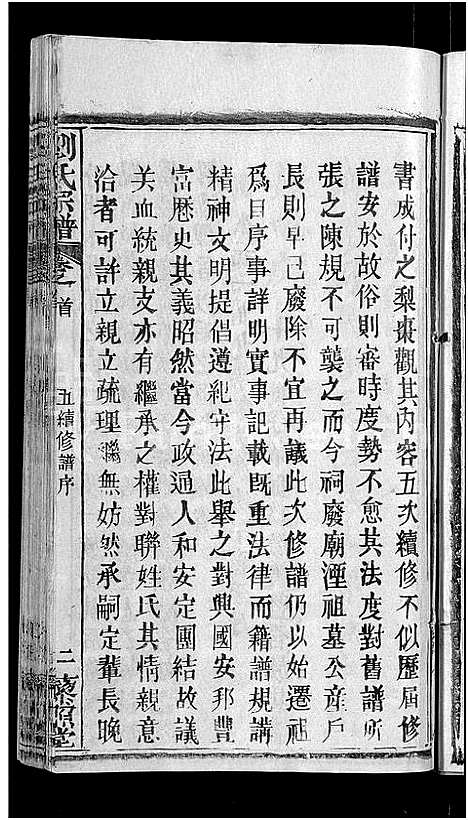 書成付之梨棗觀其內容五次續修不似歷屆修
譜安於故俗則審時度勢不愈其法度對舊譜所
張之陳規不可襲之而今祠廢廟湮祖墓公產戶
長則早已廢除不宜再議此次修譜仍以始遷祖
爲目序事詳明實事記載既重法律而籍譜規講
精神文明提倡遵紀守法此舉之對興國安邦豐
富歷史其義昭然當今政通人和安定團结故議
关血統親支亦有繼承之權對聯姓氏其情親意
洽者可許立親立疏理無妨然承嗣定輩長晚
劉氏宗譜
卷首
五續修譜序
二
堂